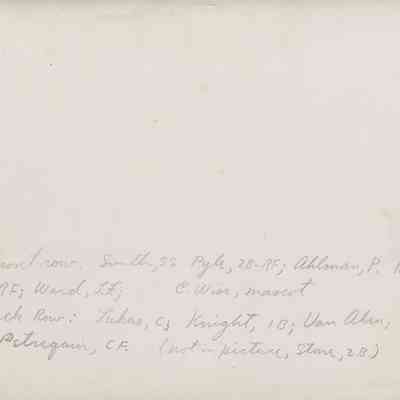 ront row: Smith, SS Pyle, 2B-RF; Ahlman, P.
RF; Ward, LF; C. Wise, mascot
ck Row: Lukas, C; Knight, 1B; Van Alen,
CF. (not in picture, Stone, 2B.)